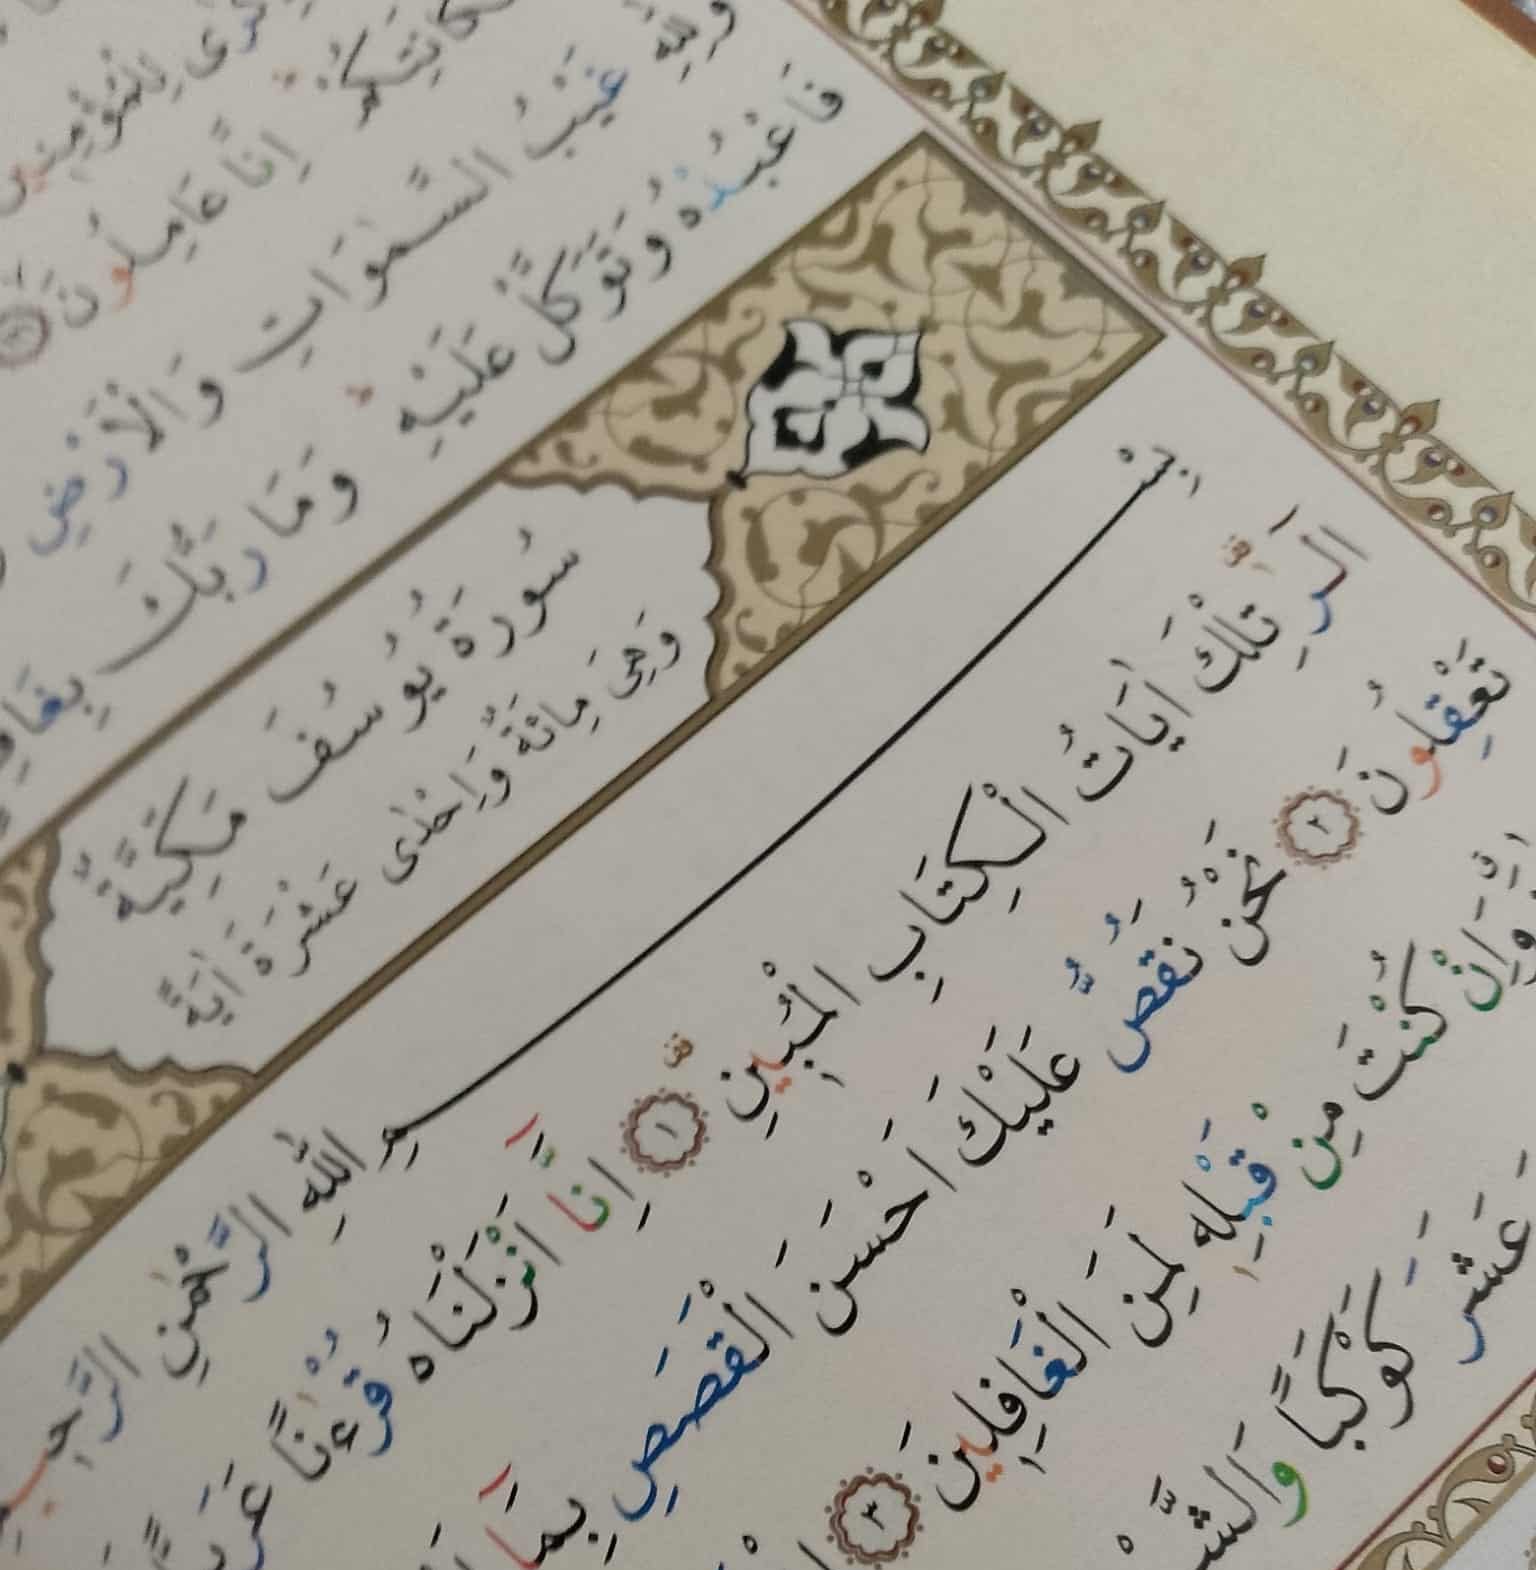 لِلْمُؤْمِنِينَ
مَكَانَتِكُمْ اِنَّا عَامِلُونَ
وَلِلّٰهِ غَيْبُ السَّمٰوَاتِ وَالْاَرْضِ
فَاعْبُدْهُ وَتَوَكَّلْ عَلَيْهِ وَمَا رَبُّكَ بِغَافِلٍ
سُورَةُ يُوسُفَ مَكِّيَّةٌ
وَهِىَ مِائَةٌ وَاِحْدٰى عَشْرَةَ اٰيَةً
بِسْمِ اللّٰهِ الرَّحْمٰنِ الرَّحِيمِ
الٓرٰ تِلْكَ اٰيَاتُ الْكِتَابِ الْمُبِينِ ﴿١﴾ اِنَّٓا اَنْزَلْنَاهُ قُرْءٰنًا عَرَبِيًّا
تَعْقِلُونَ ﴿٢﴾ نَحْنُ نَقُصُّ عَلَيْكَ اَحْسَنَ الْقَصَصِ بِمَٓا
وَاِنْ كُنْتَ مِنْ قَبْلِهِ لَمِنَ الْغَافِلِينَ ﴿٣﴾
عَشَرَ كَوْكَبًا وَالشَّمْسَ